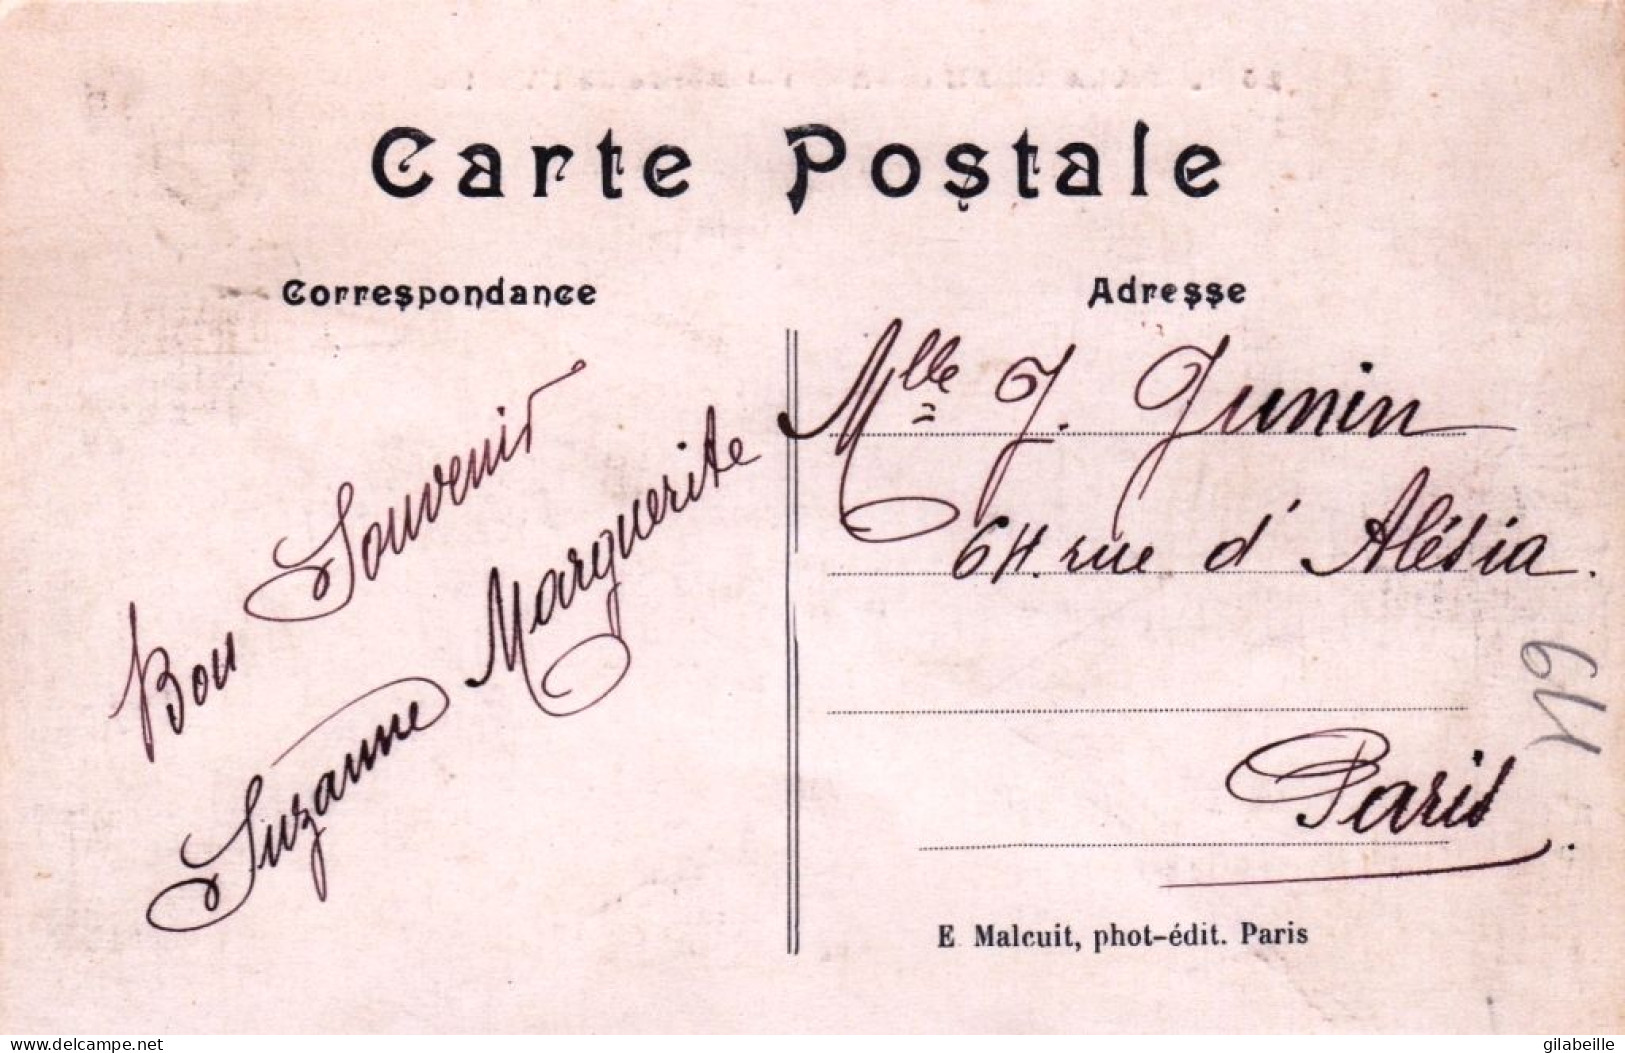 Carte Postale
Correspondance
Adresse
Bon Souvenir
Suzanne Marguerite
Mlle J. Junin
64 rue d'Alésia.
Paris.
E Malcuit, phot-édit. Paris
delcampe.net
gilabeille